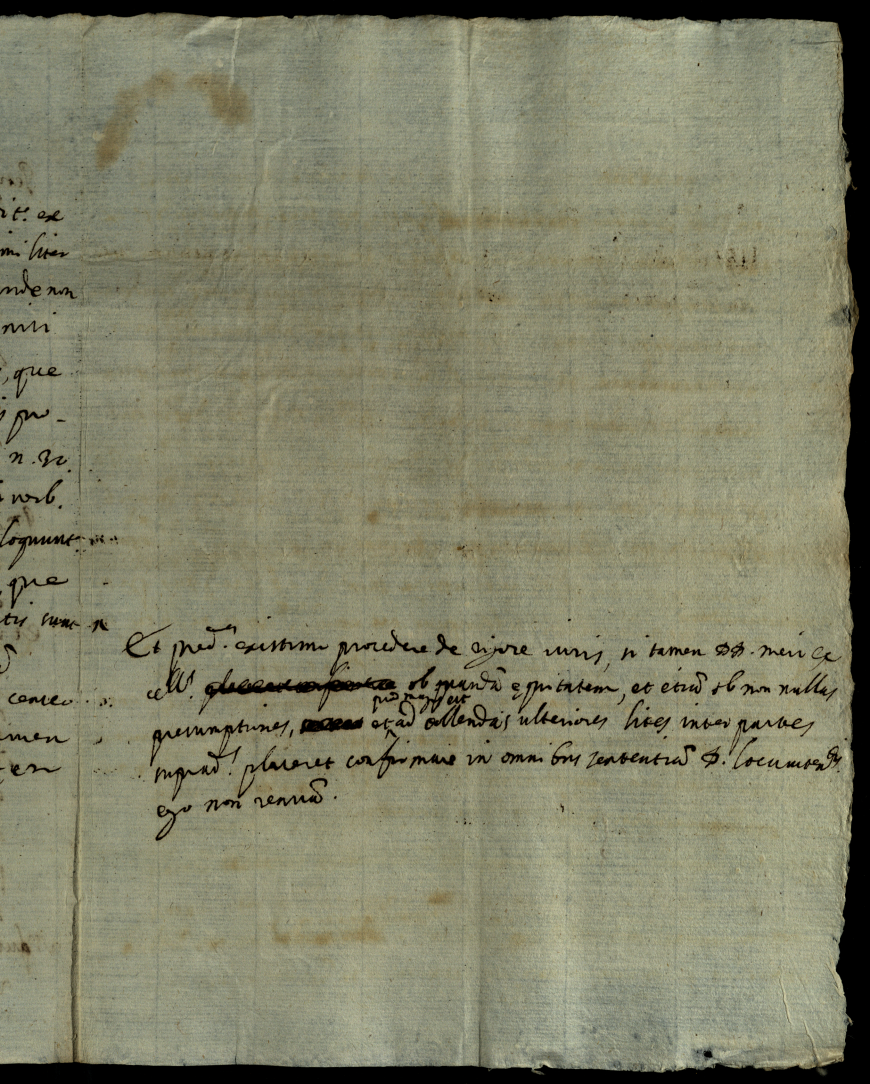 it. ex
militer
unde non
nisi
, que
s pro-
n. 72.
verb.
loquunt.
que
tis sunt
censeo
amen
ten
Et pred.ᵃ existimo procedere de rigore iuris, si tamen DD. meis ex
cell.ˢ ob quandā equitatem, et etiā ob non nullas
presumptiones, et ad tollendas ulteriores lites inter partes
suprad.ˢ placeret confirmare in omnibus sententiā D. locumten.ᵗⁱˢ
ego non renuā.